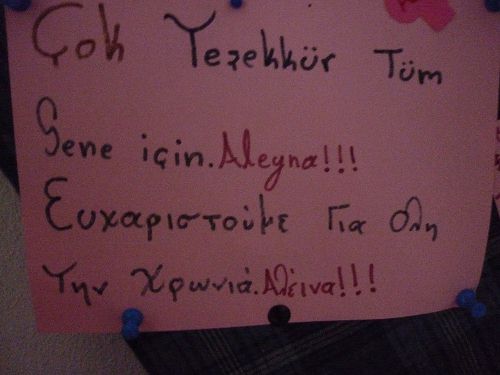 Çok Teşekkür Tüm
Sene için.Aleyna!!!
Ευχαριστούμε Για Ολη
Την Χρωνιά.Αλέινα!!!